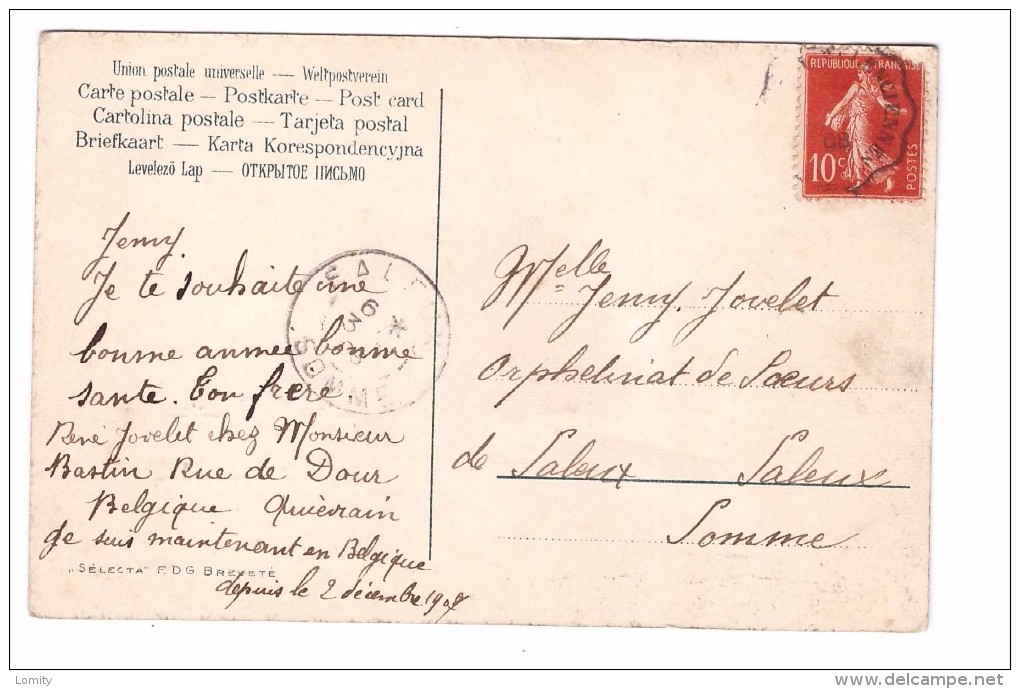 Union postale universelle — Weltpostverein
Carte postale — Postkarte — Post card
Cartolina postale — Tarjeta postal
Briefkaart — Karta Korespondencyjna
Levelező Lap — ОТКРЫТОЕ ПИСЬМО
Jenny.
Je te souhaite une
bonne année bonne
sante. Ton frere
René Jovelet chez Monsieur
Bastin Rue de Dour
Belgique Quièvrain
Je suis maintenant en Belgique
depuis le 2 décembre 1907
„SÉLECTA" F.D.G. BREVETÉ
SALEUX
SOMME
REPUBLIQUE FRANÇAISE
10c
POSTES
Melle Jenny. Jovelet
Orphelinat de Sœurs
de Saleux Saleux
Somme
Lomity
delcampe.net